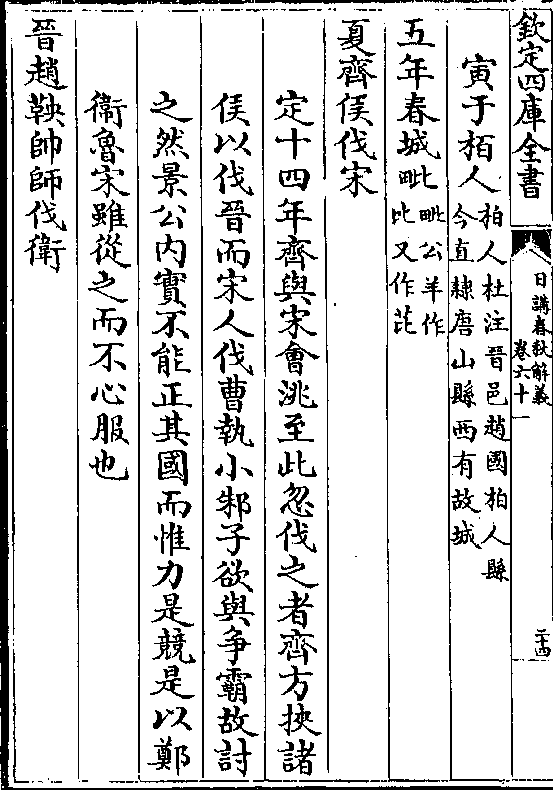 欽定四庫全書
日講春秋解義
卷六十一
二十四
寅于栢人柏人杜注晉邑趙國柏人縣
今直隸唐山縣西有故城
五年春城毗毗公羊作
比又作芘
夏齊侯伐宋
定十四年齊與宋會洮至此忽伐之者齊方挾諸
侯以伐晉而宋人伐曹執小邾子欲與争霸故討
之然景公内實不能正其國而惟力是競是以鄭
衞魯宋雖從之而不心服也
晉趙鞅帥師伐衛